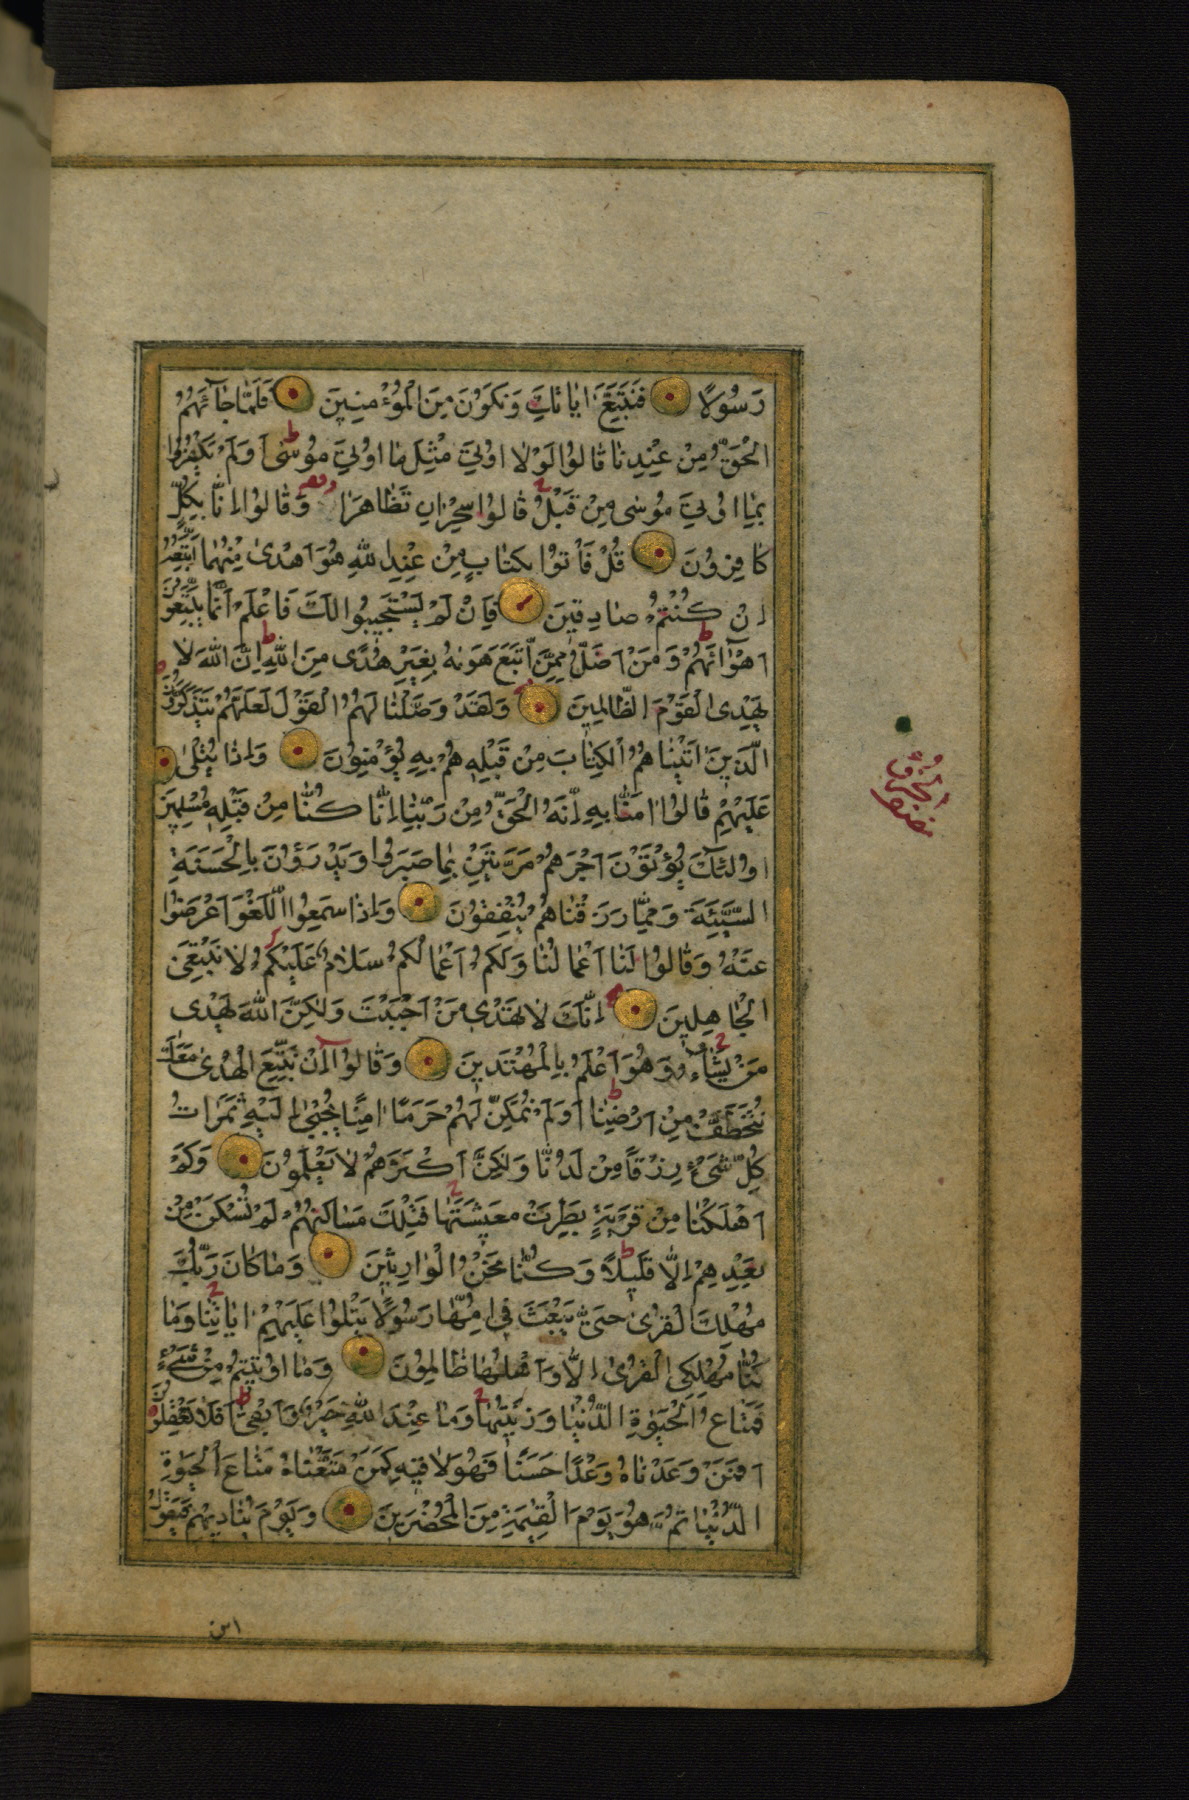 رَسُولًا فَنَتَّبِعَ اٰيٰاتِكَ وَنَكُونَ مِنَ الْمُؤْمِنِينَ فَلَمّٰا جٰآئَهُمُ
الْحَقُّ مِنْ عِنْدِنٰا قٰالُوا لَوْلٰا اُوتِيَ مِثْلَ مٰا اُوتِيَ مُوسٰى اَوَلَمْ يَكْفُرُوا
بِمٰا اُوتِيَ مُوسٰى مِنْ قَبْلُ قٰالُوا سِحْرٰانِ تَظٰاهَرٰا وَقٰالُوا اِنّٰا بِكُلٍّ
كٰافِرُونَ قُلْ فَأْتُوا بِكِتٰابٍ مِنْ عِنْدِ اللّٰهِ هُوَ اَهْدٰى مِنْهُمٰا اَتَّبِعْهُ
اِنْ كُنْتُمْ صٰادِقِينَ فَاِنْ لَمْ يَسْتَجِيبُوا لَكَ فَاعْلَمْ اَنَّمٰا يَتَّبِعُونَ
اَهْوٰآئَهُمْ وَمَنْ اَضَلُّ مِمَّنِ اتَّبَعَ هَوٰيهُ بِغَيْرِ هُدًى مِنَ اللّٰهِ اِنَّ اللّٰهَ لٰا
يَهْدِى الْقَوْمَ الظّٰالِمِينَ وَلَقَدْ وَصَّلْنٰا لَهُمُ الْقَوْلَ لَعَلَّهُمْ يَتَذَكَّرُونَ
الَّذِينَ اٰتَيْنٰاهُمُ الْكِتٰابَ مِنْ قَبْلِهِ هُمْ بِهِ يُؤْمِنُونَ وَاِذٰا يُتْلٰى
عَلَيْهِمْ قٰالُوا اٰمَنّٰا بِهِ اِنَّهُ الْحَقُّ مِنْ رَبِّنٰا اِنّٰا كُنّٰا مِنْ قَبْلِهِ مُسْلِمِينَ
اُولٰئِكَ يُؤْتَوْنَ اَجْرَهُمْ مَرَّتَيْنِ بِمٰا صَبَرُوا وَيَدْرَؤُنَ بِالْحَسَنَةِ
السَّيِّئَةَ وَمِمّٰا رَزَقْنٰاهُمْ يُنْفِقُونَ وَاِذٰا سَمِعُوا اللَّغْوَ اَعْرَضُوا
عَنْهُ وَقٰالُوا لَنٰا اَعْمٰالُنٰا وَلَكُمْ اَعْمٰالُكُمْ سَلٰامٌ عَلَيْكُمْ لٰا نَبْتَغِى
الْجٰاهِلِينَ اِنَّكَ لٰا تَهْدِى مَنْ اَحْبَبْتَ وَلٰكِنَّ اللّٰهَ يَهْدِى
مَنْ يَشٰآءُ وَهُوَ اَعْلَمُ بِالْمُهْتَدِينَ وَقٰالُوا اِنْ نَتَّبِعِ الْهُدٰى مَعَكَ
نُتَخَطَّفْ مِنْ اَرْضِنٰا اَوَلَمْ نُمَكِّنْ لَهُمْ حَرَمًا اٰمِنًا يُجْبٰى اِلَيْهِ ثَمَرٰاتُ
كُلِّ شَىْءٍ رِزْقًا مِنْ لَدُنّٰا وَلٰكِنَّ اَكْثَرَهُمْ لٰا يَعْلَمُونَ وَكَمْ
اَهْلَكْنٰا مِنْ قَرْيَةٍ بَطِرَتْ مَعِيشَتَهٰا فَتِلْكَ مَسٰاكِنُهُمْ لَمْ تُسْكَنْ مِنْ
بَعْدِهِمْ اِلّٰا قَلِيلًا وَكُنّٰا نَحْنُ الْوٰارِثِينَ وَمٰا كٰانَ رَبُّكَ
مُهْلِكَ الْقُرٰى حَتّٰى يَبْعَثَ فِى اُمِّهٰا رَسُولًا يَتْلُوا عَلَيْهِمْ اٰيٰاتِنٰا وَمٰا
كُنّٰا مُهْلِكِى الْقُرٰى اِلّٰا وَاَهْلُهٰا ظٰالِمُونَ وَمٰا اُوتِيتُمْ مِنْ شَىْءٍ
فَمَتٰاعُ الْحَيٰوةِ الدُّنْيٰا وَزِينَتُهٰا وَمٰا عِنْدَ اللّٰهِ خَيْرٌ وَاَبْقٰى اَفَلٰا تَعْقِلُونَ
اَفَمَنْ وَعَدْنٰاهُ وَعْدًا حَسَنًا فَهُوَ لٰاقِيهِ كَمَنْ مَتَّعْنٰاهُ مَتٰاعَ الْحَيٰوةِ
الدُّنْيٰا ثُمَّ هُوَ يَوْمَ الْقِيٰمَةِ مِنَ الْمُحْضَرِينَ وَيَوْمَ يُنٰادِيهِمْ فَيَقُولُ
نصف الحزب
اين